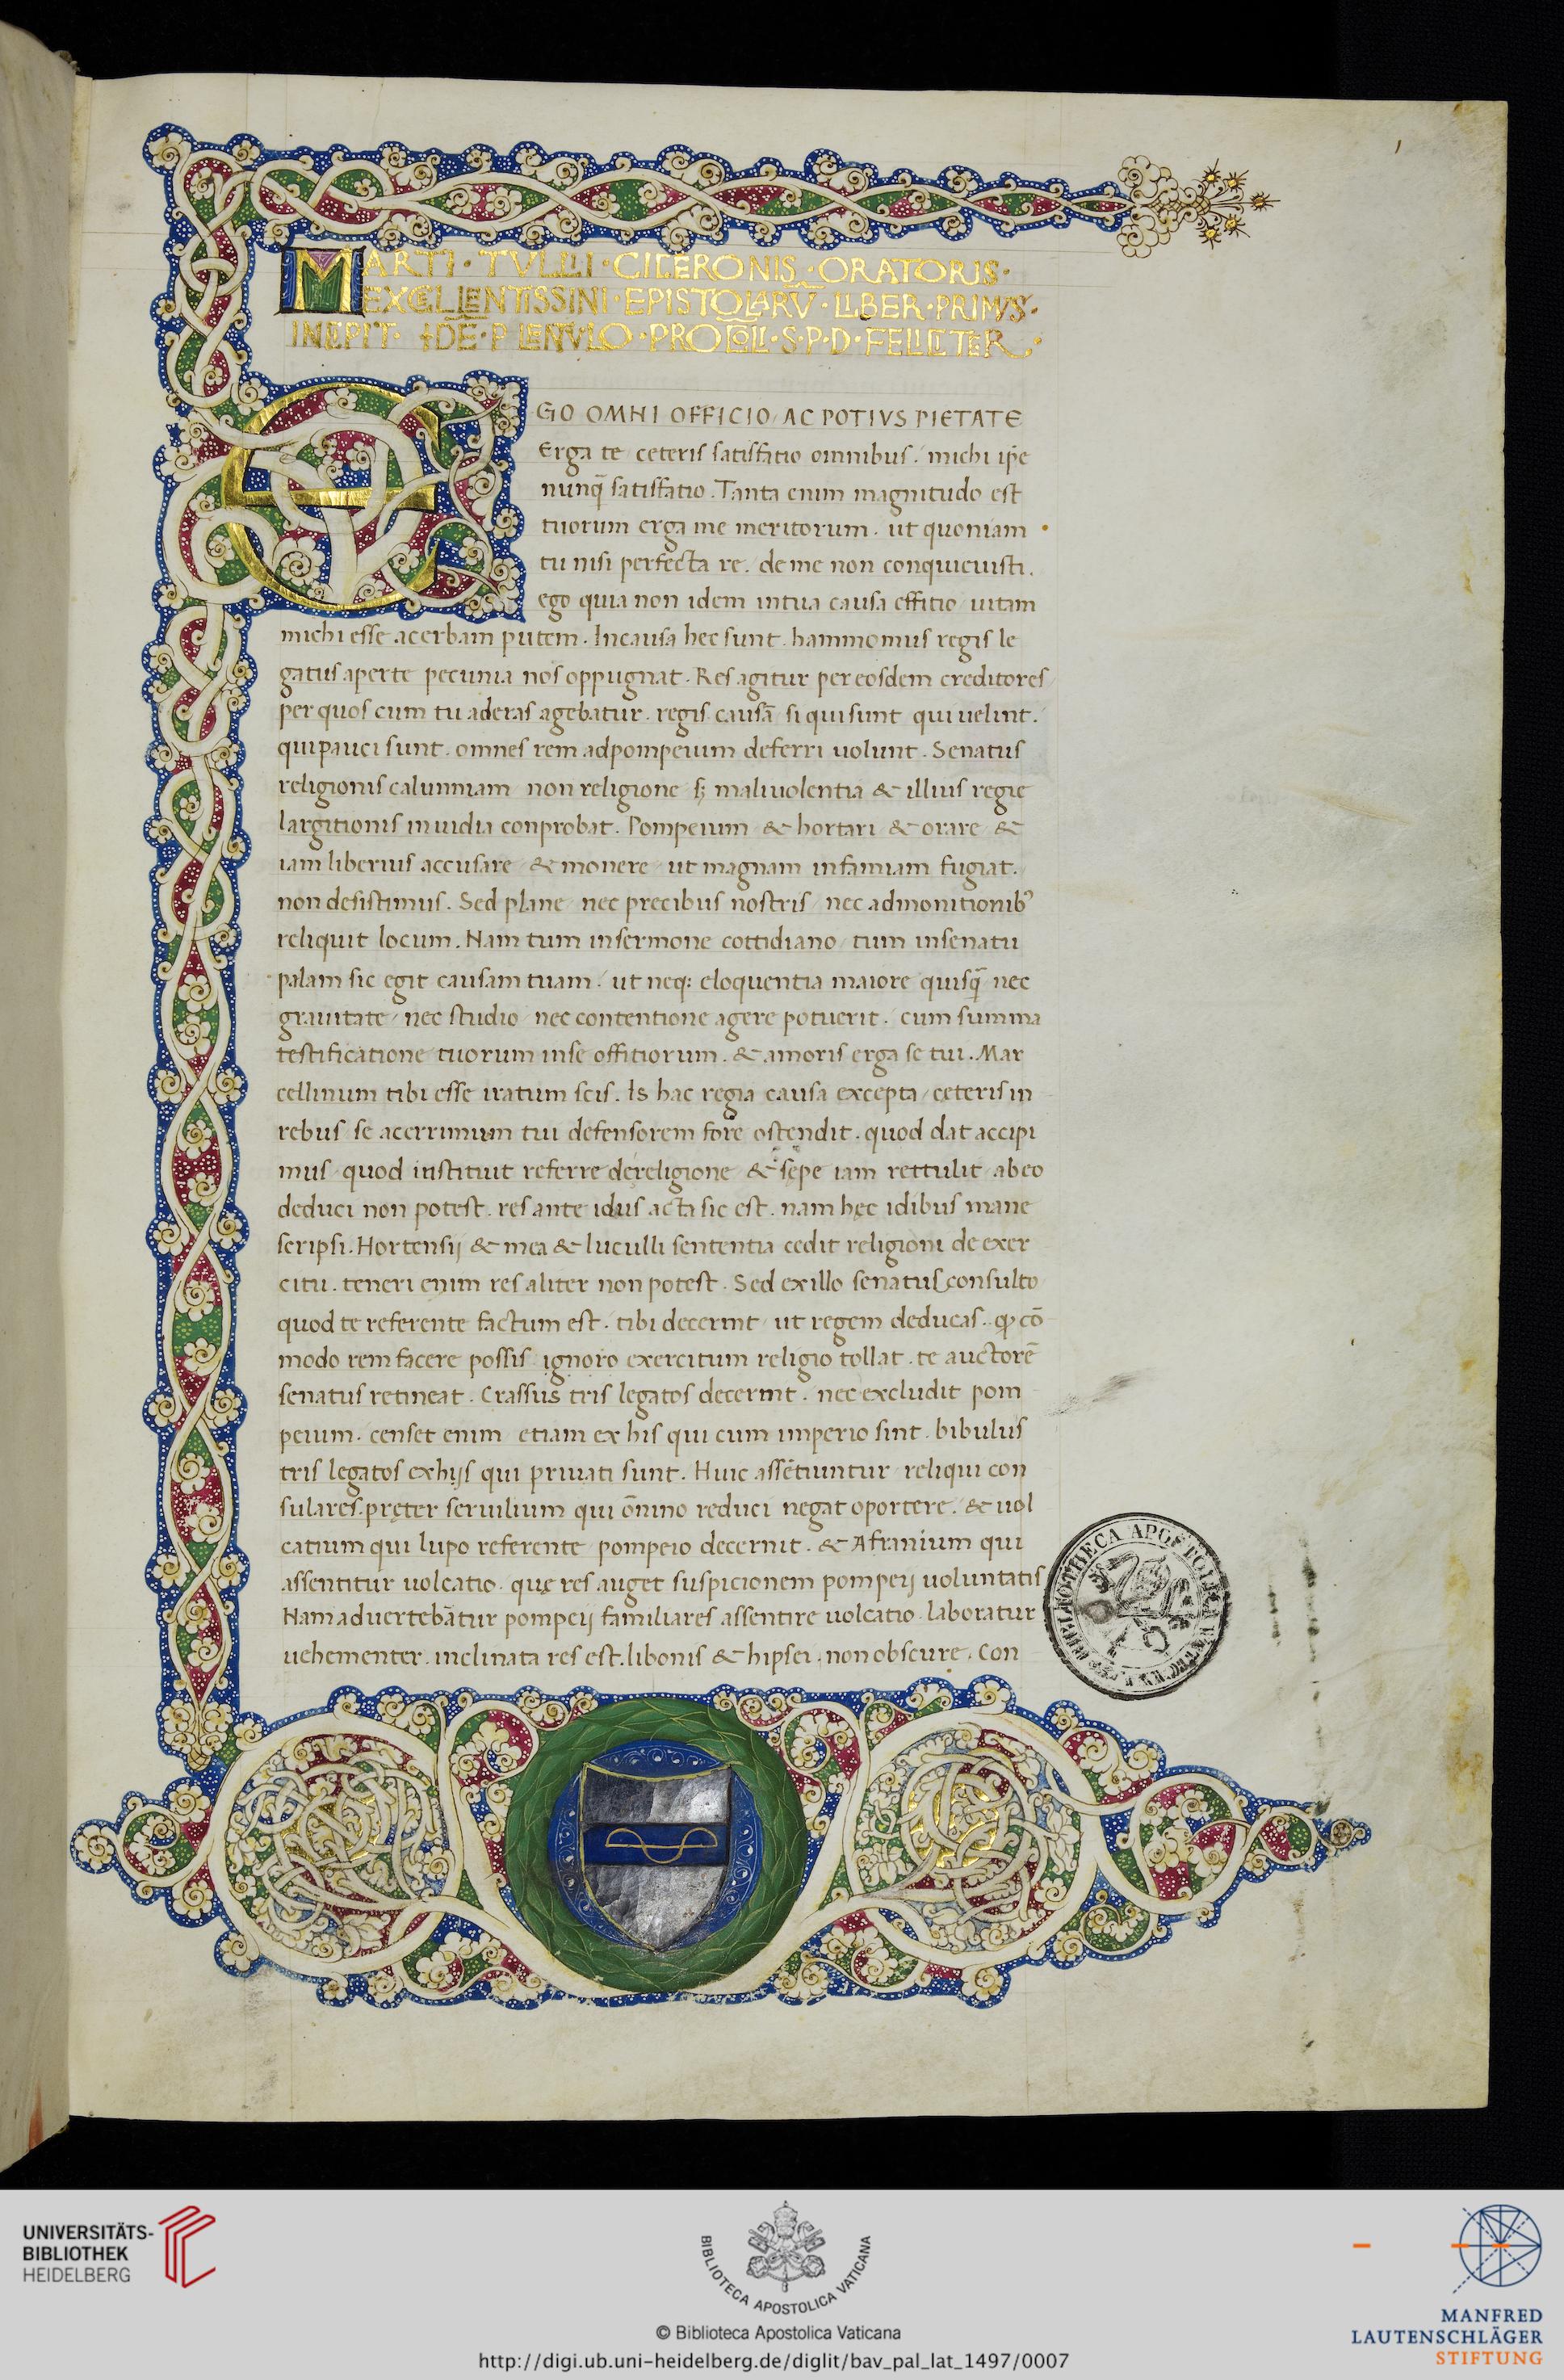 1
MARTI · TVLLII · CICERONIS · ORATORIS ·
EXCELLENTISSINI · EPISTOLARV̄ · LIBER · PRIMVS ·
INCIPIT · P LENVLO · PROCOLI · S · P · D · FELICITER
EGO OMNI OFFICIO / AC POTIVS PIETATE
Erga te ceteris satisfatio omnibus / michi ip̄e
nunq̄ satisfatio . Tanta enim magnitudo est
tuorum erga me meritorum . ut quoniam
tu nisi perfecta re . de me non conquieuisti .
ego quia non idem in tua causa effitio / uitam
michi esse acerbam putem . In causa hec sunt . hammomus regis le
gatus aperte pecunia nos oppugnat . Res agitur per eosdem creditores /
per quos cum tu aderas agebatur . regis causā si qui sunt qui uelint .
qui pauci sunt . omnes rem ad pompeium deferri uolunt . Senatus
religionis calumniam non religione sꝫ maliuolentia & illius regie
largitionis inuidia conprobat . Pompeium & hortari & orare &
iam liberius accusare & monere / ut magnam infamiam fugiat .
non desistimus . Sed plane nec precibus nostris / nec admonitionibꝰ
reliquit locum . Nam tum in sermone cottidiano / tum in senatu
palam sic egit causam tuam / ut neq: eloquentia maiore quisq̄ nec
grauitate / nec studio / nec contentione agere potuerit . cum summa
testificatione tuorum in se offitiorum . & amoris erga se tui . Mar
cellinum tibi esse iratum scis . Is hac regia causa excepta / ceteris in
rebus se acerrimum tui defensorem fore ostendit . quod dat accipi
mus / quod instituit referre de religione & sepe iam rettulit ab eo
deduci non potest . res ante idus acta sic est . nam hęc idibus mane
scripsi . Hortensij & mea & luculli sententia cedit religioni de exer
citu . teneri enim res aliter non potest . Sed ex illo senatus consulto
quod te referente factum est . tibi decernit / ut regem deducas . ꝙ cō
modo rem facere possis ignoro exercitum religio tollat . te auctorē
senatus retineat . Crassus tris legatos decernit . nec excludit pom
peium . censet enim etiam ex his qui cum imperio sint . bibulus
tris legatos ex hijs qui priuati sunt . Huic assētiuntur reliqui con
sulares . pręter seruilium qui ōnino reduci negat oportere . & uol
catium qui lupo referente pompeio decernit . & Afranium qui
assentitur uolcatio . quę res auget suspicionem pompeij uoluntatis
Nam aduertebātur pompeij familiares assentire uolcatio . laboratur
uehementer . inclinata res est . libonis & hipsei . non obscure . con
UNIVERSITÄTS-
BIBLIOTHEK
HEIDELBERG
BIBLIOTECA APOSTOLICA VATICANA
© Biblioteca Apostolica Vaticana
http://digi.ub.uni-heidelberg.de/diglit/bav_pal_lat_1497/0007
MANFRED
LAUTENSCHLÄGER
STIFTUNG